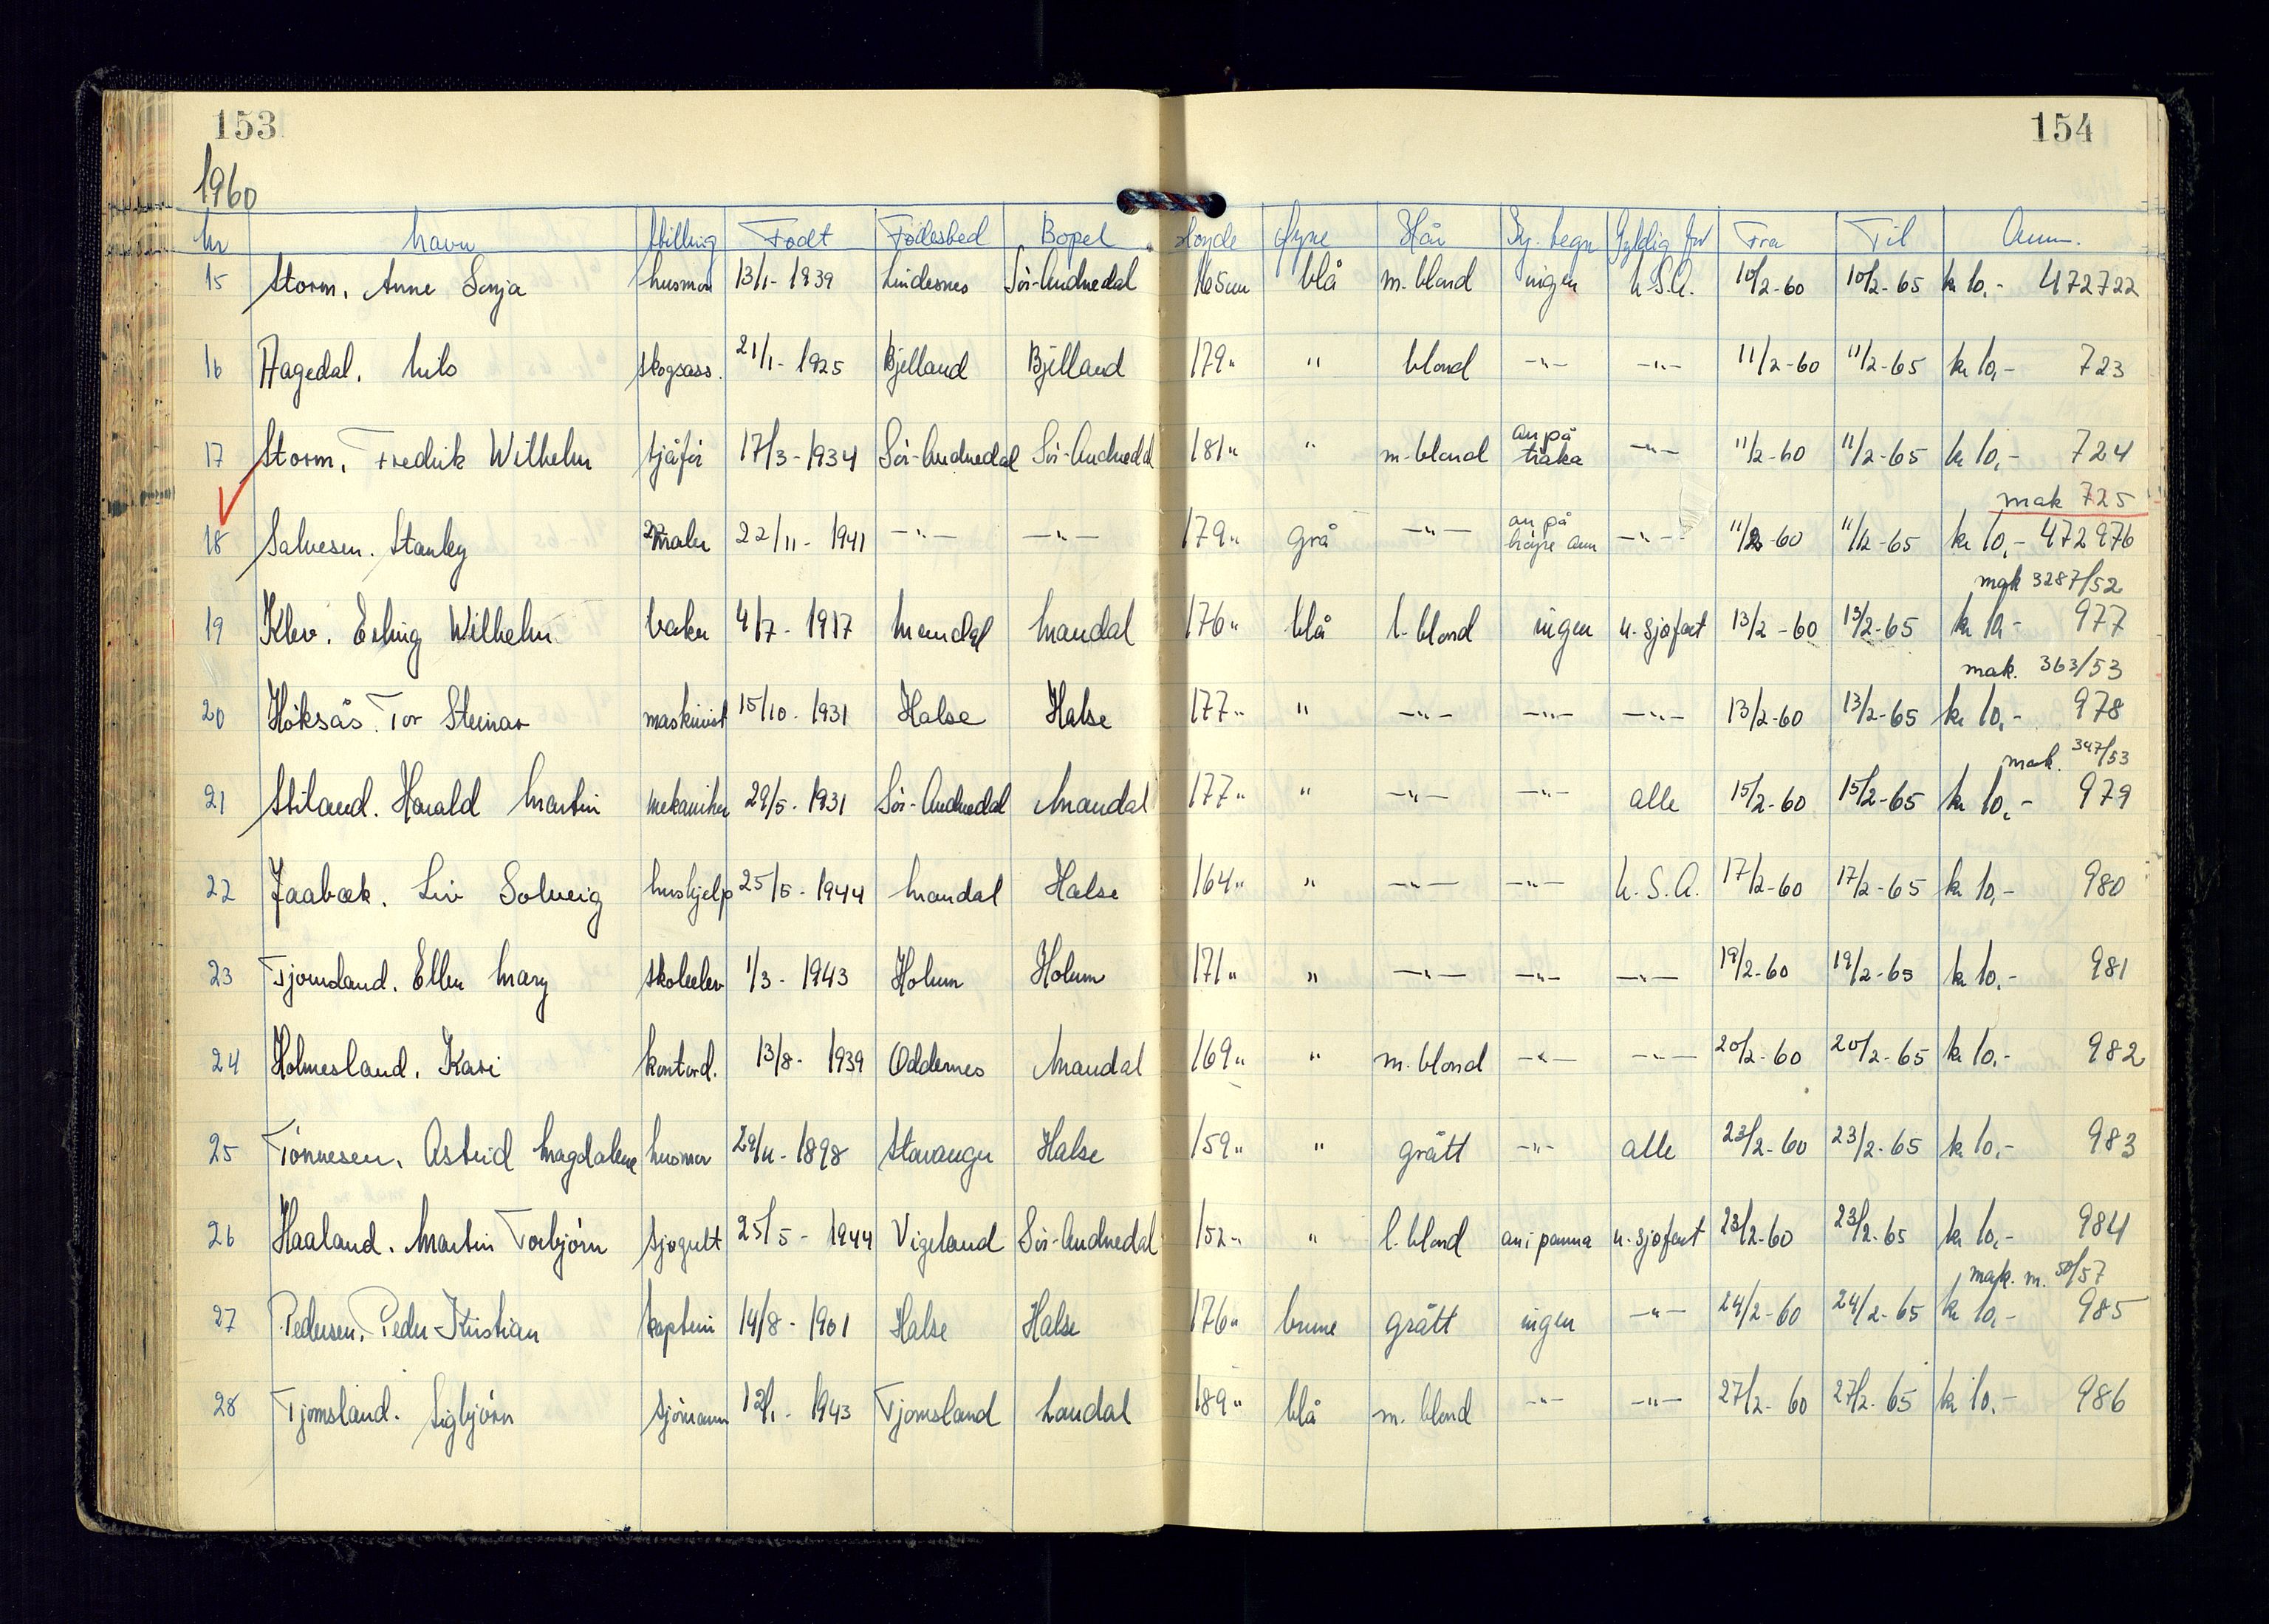 153
154
1960
nr Navn Stilling Født Fødested Bopel Høyde Øyne Hår Sy. tegn Gyldig for Fra Til Anm.
15 Storm, Anne Sonja husmor 13/1-1939 Lindesnes Sör-Audnedal 165cm blå m. blond ingen U.S.A. 10/2-60 10/2-65 kr 10,- 472722
16 Aagedal, Nils skogsass. 21/1-1925 Bjelland Bjelland 179" " blond -"- -"- 11/2-60 11/2-65 kr 10,- 723
17 Storm, Fredrik Wilhelm sjåför 17/3-1934 Sör-Audnedal Sör-Audnedal 181" " m-blond arr på haka -"- 11/2-60 11/2-65 kr 10,- 724
mak 725
18 Salvesen, Stanley maler 22/11-1941 -"- -"- 179" grå -"- arr på höyre arm -"- 11/2-60 11/2-65 kr 10,- 472976
mak 3287/52
19 Klev, Erling Wilhelm baker 4/7-1917 Mandal Mandal 176" blå l-blond ingen u. sjøfart 13/2-60 13/2-65 kr 10,- 977
mak. 363/53
20 Höksås, Tor Steinar maskinist 15/10-1931 Halse Halse 177" " -"- -"- -"- 13/2-60 13/2-65 kr 10,- 978
mak. 347/53
21 Stiland, Harald Martin mekaniker 29/5-1931 Sör-Audnedal Mandal 177" " -"- -"- alle 15/2-60 15/2-65 kr 10,- 979
22 Jaabæk, Liv Solveig hushjelp 25/5-1944 Mandal Halse 164" " -"- -"- U.S.A. 17/2-60 17/2-65 kr 10,- 980
23 Tjomsland, Ellen Mary skoleelev 1/3-1943 Holum Holum 171" " -"- -"- -"- 19/2-60 19/2-65 kr 10,- 981
24 Holmesland, Kari kontord. 13/8-1939 Oddernes Mandal 169" " m. blond -"- -"- 20/2-60 20/2-65 kr 10,- 982
25 Tönnesen, Astrid Magdalene husmor 29/11-1898 Stavanger Halse 159" " grått -"- alle 23/2-60 23/2-65 kr 10,- 983
26 Haaland, Martin Torbjörn sjøgutt 25/5-1944 Vigeland Sör-Audnedal 152" " l. blond arr i panna u. sjøfart 23/2-60 23/2-65 kr 10,- 984
mak. m. 50/57
27 Pedersen, Peder Kristian kaptein 14/8-1901 Halse Halse 176" brune grått ingen -"- 24/2-60 24/2-65 kr 10,- 985
28 Tjomsland, Sigbjörn sjömann 12/1-1943 Tjomsland Laudal 189" blå m. blond -"- -"- 27/2-60 27/2-65 kr 10,- 986